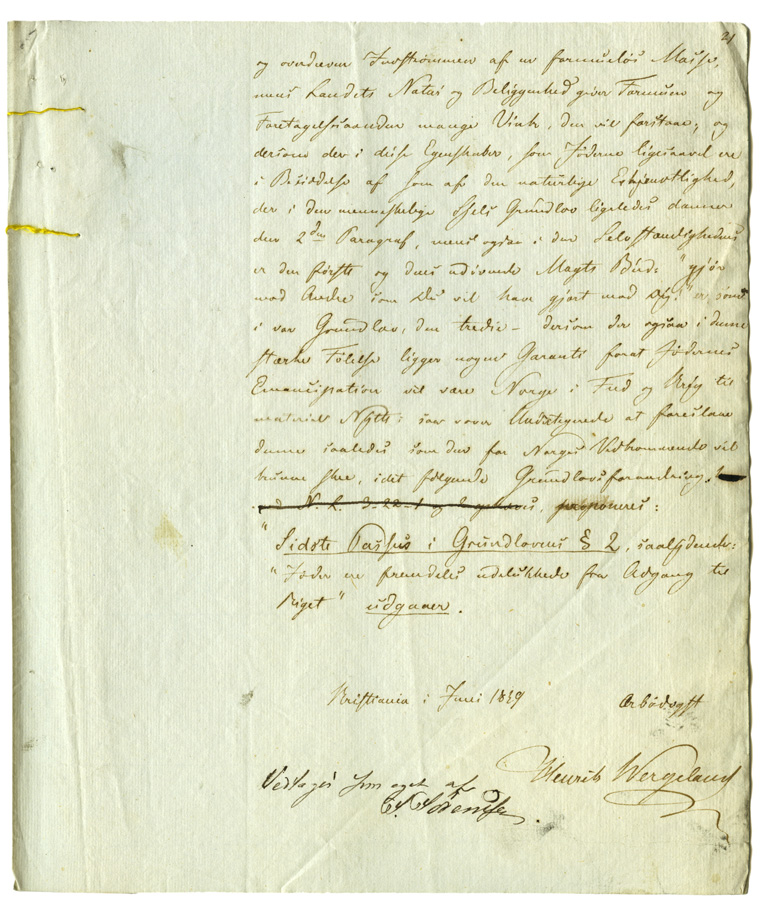 21
og overdreven Indstrømmen af en formueløs Masse,
mens Landets Natur og Beliggenhed giver Formuen og
Foretagelsesaanden mange Vink, den vil forstaae; og
dersom der i disse Egenskaber, som Jøderne ligesaavel ere
i Besiddelse af som af den naturlige Erkjendtlighed,
der i den menneskelige Sjels Grundlov ligeledes danner
den 2den Paragraf, mens ogsaa i den Selvstændighedens
er den første og dens udivende Magts Bud: "gjør
mod Andre som Du vil have gjort mod Dig!" er som
i vor Grundlov, den tredie – dersom der ogsaa i denne
stærke Følelse ligger nogen Garanti forat Jødernes
Emancipation vil være Norge i Fred og Krig til
materiel Nytte: saa vover Undertegnede at foreslaae
denne saaledes som den for Norges Vedkommende vil
kunne skee, idet følgende Grundlovsforandring,
N. L. 3-22-1 og proponeres:
"Sidste Passus i Grundlovens § 2, saalydende:
"Jøder ere fremdeles udelukkede fra Adgang til
Riget" udgaaer.
Kristiania i Juni 1839 Ærbødigst
Henrik Wergeland
Vedtages som eget af
Sørensen.